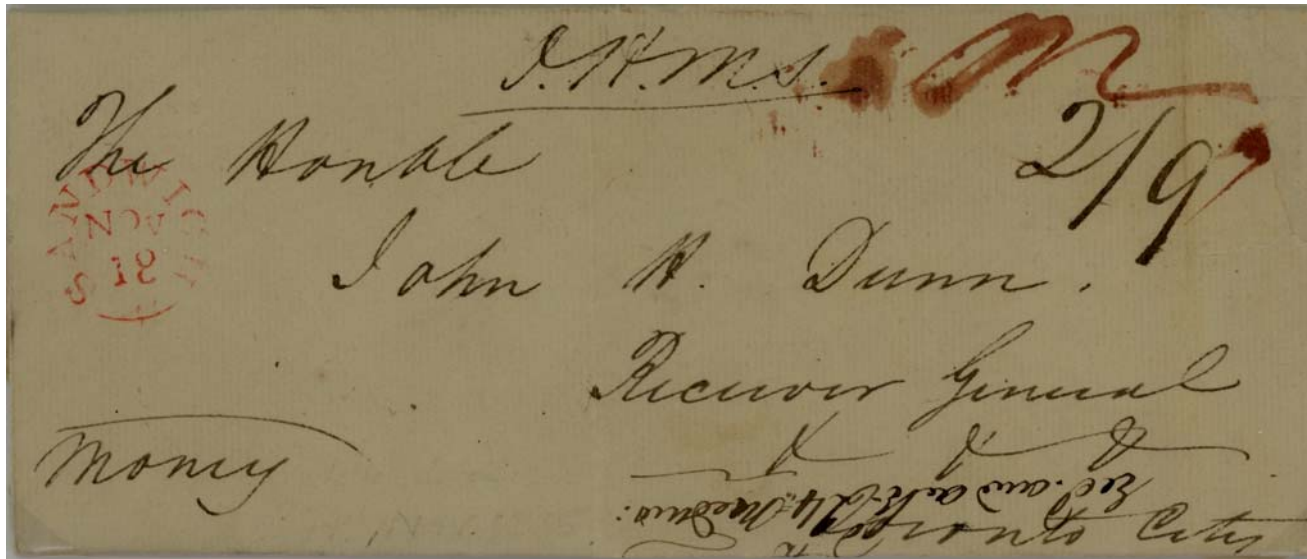 O.H.M.S.
2/9
The Honble
SANDWICH
NOV
18
John H. Dunn.
Receiver General
& & &
Money
Toronto City
Recd. and ackd. 24